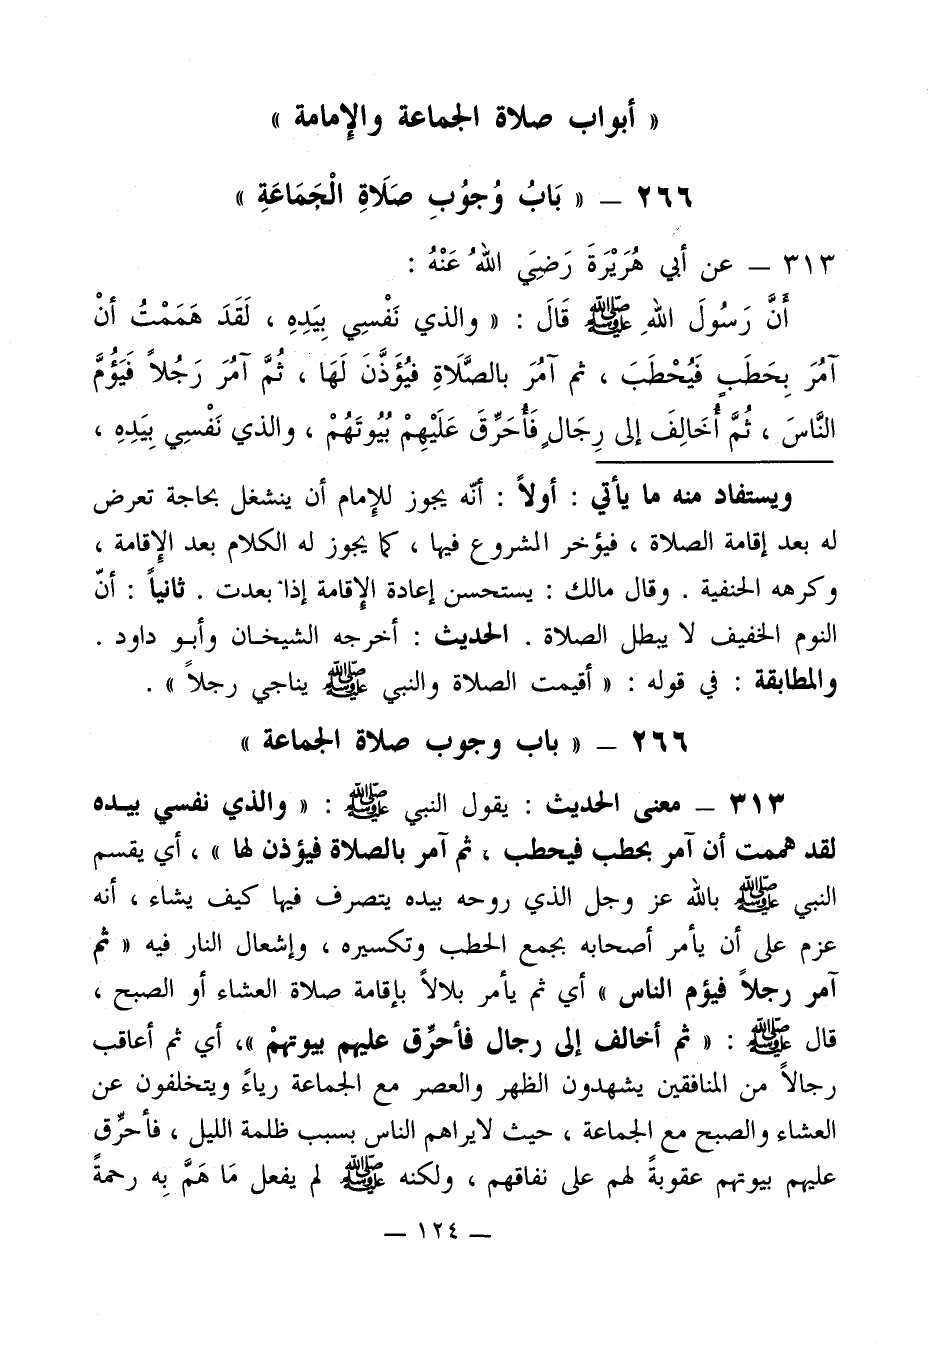 « أبواب صلاة الجماعة والإمامة »
٢٦٦ – « بَابُ وُجُوُبِ صَلَاةِ الْجَمَاعَةِ »
٣١٣ – عن أبي هُرَيْرَةَ رَضِيَ اللهُ عَنْهُ :
أَنَّ رَسُولَ اللهِ ﷺ قَالَ : « والذي نَفْسِي بِيَدِهِ ، لَقَدَ هَمَمْتُ أنْ
آمُرَ بِحَطَبٍ فَيُحْطَبَ ، ثم آمُرَ بالصَّلَاةِ فيُؤَذَّنَ لَهَا ، ثُمَّ آمُرَ رَجُلاً فَيَؤُمَّ
النَّاسَ ، ثُمَّ أُخَالِفَ إلى رِجَالٍ فَأُحَرِّقَ عَلَيْهِمْ بُيُوتَهُمْ ، والذي نَفْسِي بِيَدِهِ ،
ويستفاد منه ما يأتي : أولاً : أنّه يجوز للإمام أن ينشغل بحاجة تعرض
له بعد إقامة الصلاة ، فيؤخر المشروع فيها ، كما يجوز له الكلام بعد الإقامة ،
وكرهه الحنفية . وقال مالك : يستحسن إعادة الإقامة إذا بعدت . ثانياً : أنّ
النوم الخفيف لا يبطل الصلاة . الحديث : أخرجه الشيخان وأبو داود .
والمطابقة : في قوله : « أقيمت الصلاة والنبي ﷺ يناجي رجلاً » .
٢٦٦ – « باب وجوب صلاة الجماعة »
٣١٣ – معنى الحديث : يقول النبي ﷺ : « والذي نفسي بيده
لقد هممت أن آمر بحطب فيحطب ، ثم آمر بالصلاة فيؤذن لها » ، أي يقسم
النبي ﷺ بالله عز وجل الذي روحه بيده يتصرف فيها كيف يشاء ، أنه
عزم على أن يأمر أصحابه بجمع الحطب وتكسيره ، وإشعال النار فيه « ثم
آمر رجلاً فيؤم الناس » أي ثم يأمر بلالاً بإقامة صلاة العشاء أو الصبح ،
قال ﷺ : « ثم أخالف إلى رجال فأحرِّق عليهم بيوتهمْ »، أي ثم أعاقب
رجالاً من المنافقين يشهدون الظهر والعصر مع الجماعة رياءً ويتخلفون عن
العشاء والصبح مع الجماعة ، حيث لايراهم الناس بسبب ظلمة الليل ، فأحرِّق
عليهم بيوتهم عقوبةً لهم على نفاقهم ، ولكنه ﷺ لم يفعل مَا هَمَّ بِه رحمةً
– ١٢٤ –